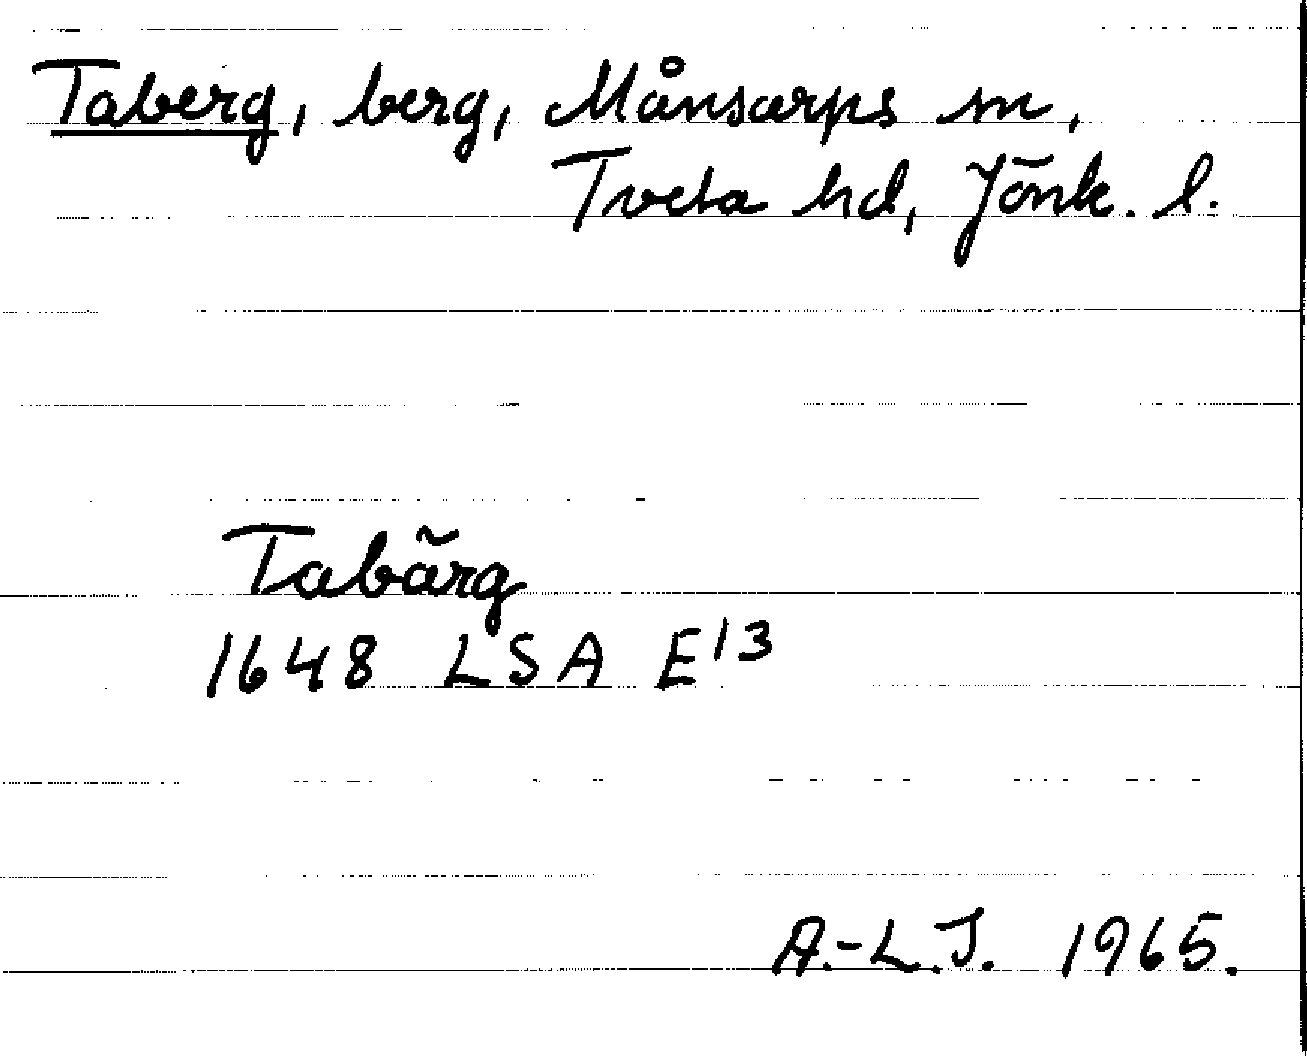 Taberg, berg, Månsarps sn,
Tveta hd, Jönk. l.
Tabärg
1648 LSA E13
A.-L.J. 1965.